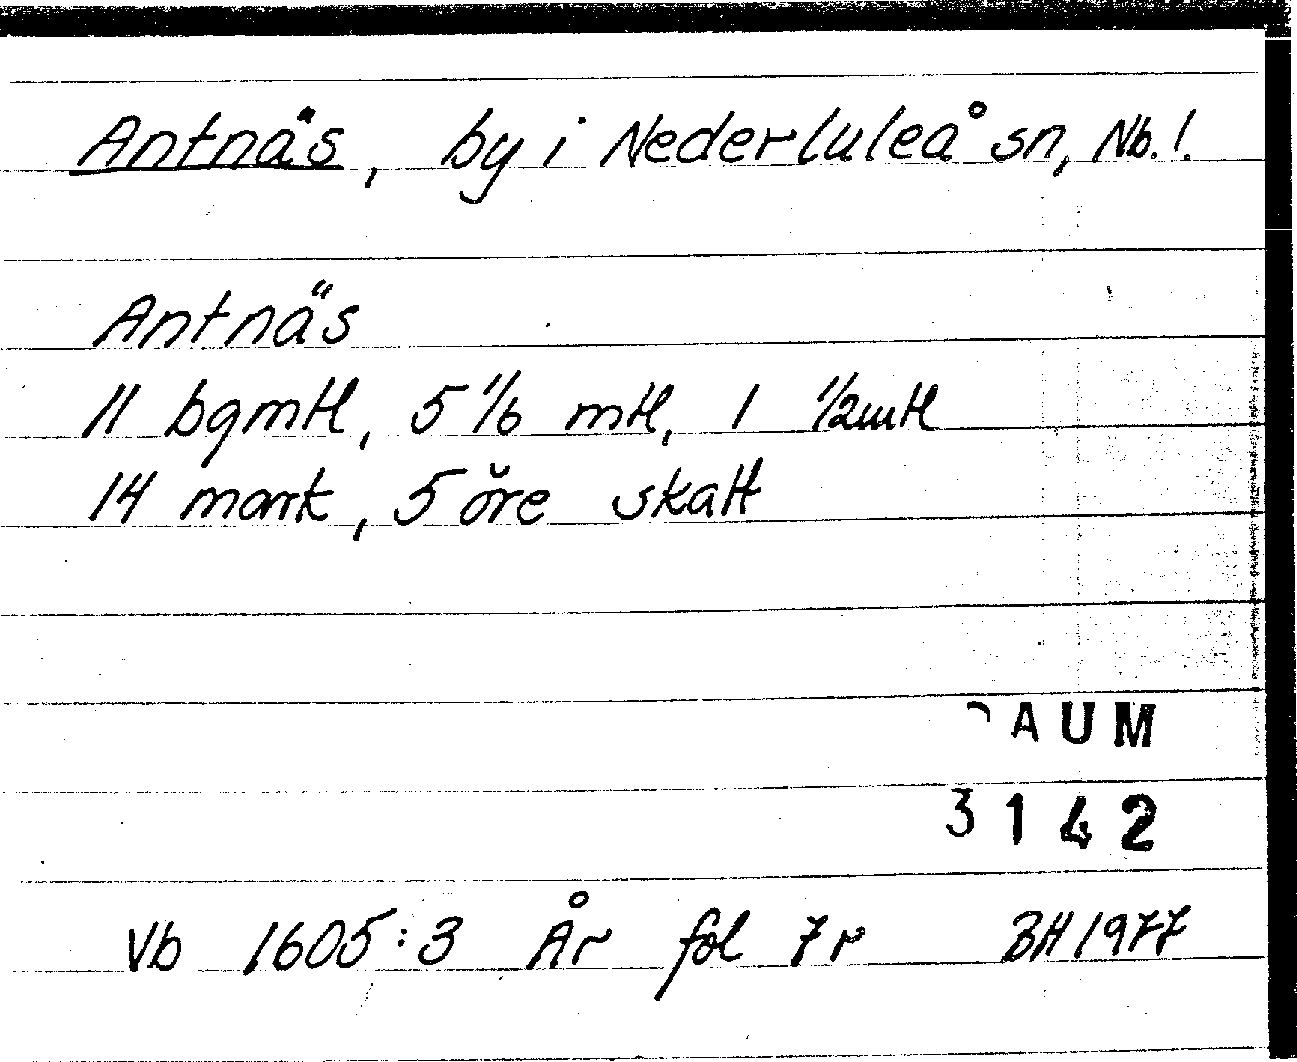 Antnäs, by i Nederluleå sn, Nb.l.
Antnäs
11 bgmtl, 5 1/6 mtl, 1 1/2 mtl
14 mark, 5 öre skatt
DAUM
3142
Vb 1605:3 År fol 7r BH 1977